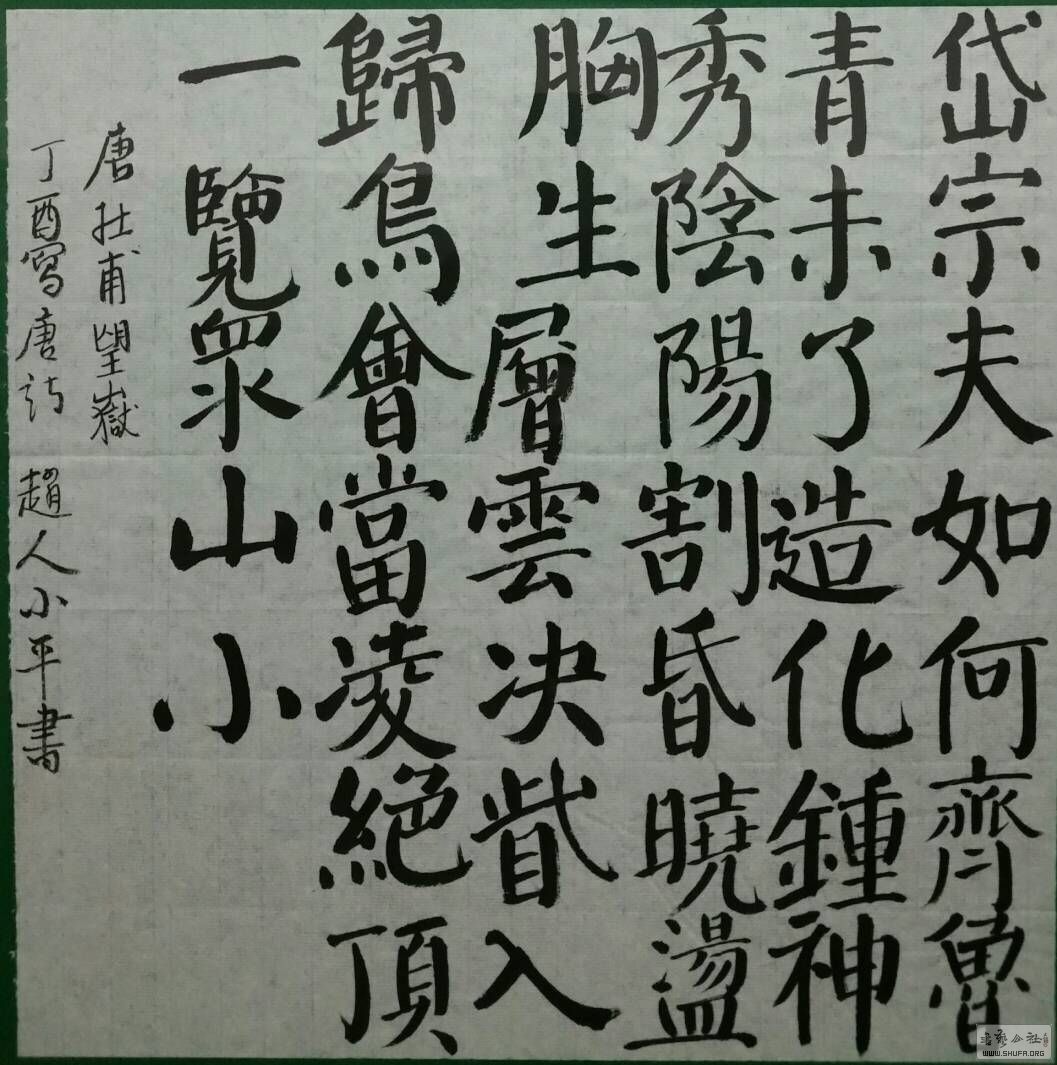 岱宗夫如何齊魯
青未了造化鍾神
秀陰陽割昏曉盪
胸生層雲决眥入
歸鳥會當凌絕頂
一覽眾山小
唐杜甫望嶽
丁酉寫唐詩 趙人小平書
书艺公社
WWW.SHUFA.ORG